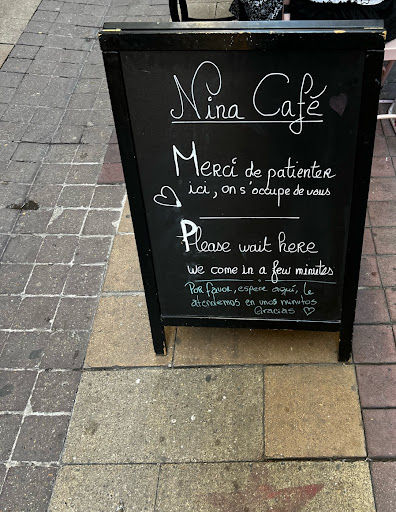 Nina Café
Merci de patienter
ici, on s'occupe de vous
Please wait here
we come in a few minutes
Por favor, espere aquí, le
atendemos en unos minutos
Gracias